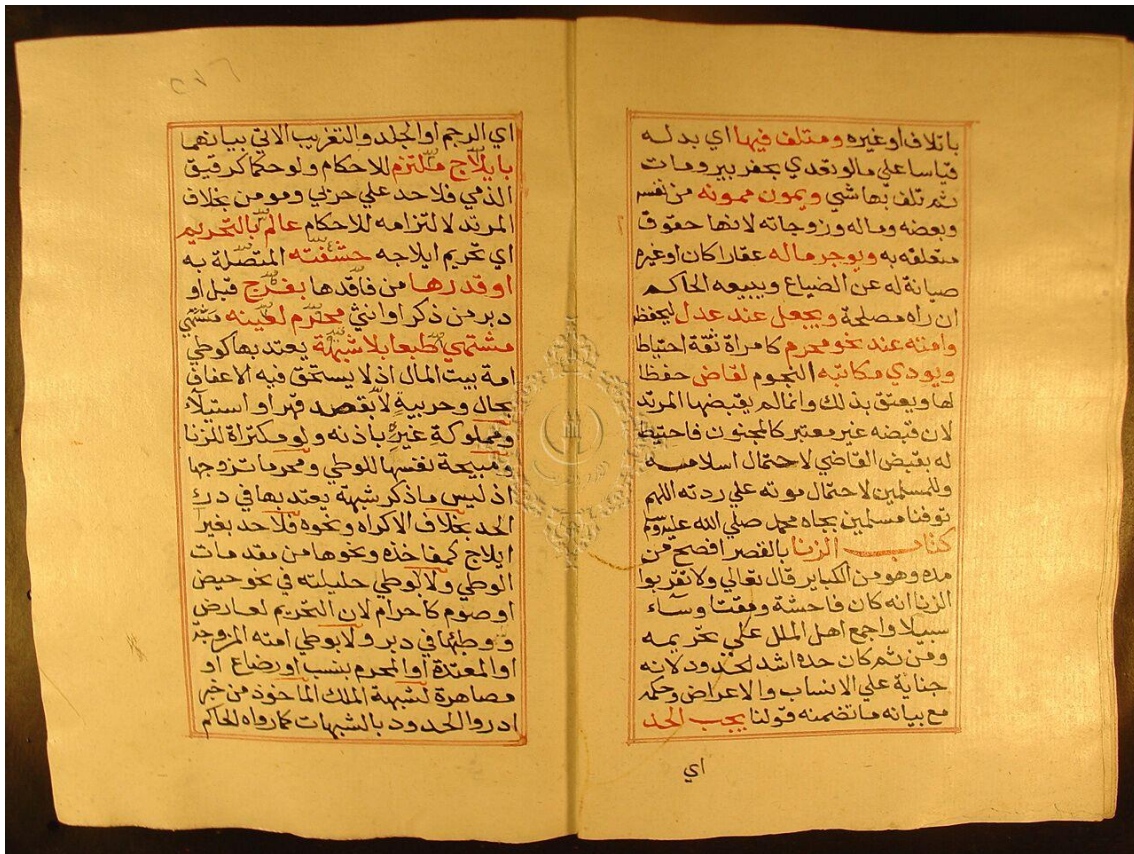 باتلاف اوغيره ومتلف فيها اي بدله
قياسا علي مالو تعدي بحفر بير ومات
ثم تلف بها شي ويمون ممونه من نفسه
وبعضه وماله وزوجاته لانها حقوق
متعلقه به ويوجر ماله عقارا كان اوغيره
صيانة له عن الضياع ويبيعه الحاكم
ان راه مصلحة ويجعل عند عدل ليحفظه
وامته عند نحو محرم كامراة ثقة احتياطا
ويودي مكاتبه النجوم لقاض حفظا
لها ويعتق بذلك وانمالم يقبضها المرتد
لان قبضه غير معتبر كالمجنون فاحتيط
له بقبض القاضي لاحتمال اسلامه
وللمسلمين لاحتمال موته علي ردته اللهم
توفنا مسلمين بجاه محمد صلي الله عليه وسلم
كتاب الزنا بالقصر افصح من
مده وهو من الكباير قال تعالي ولاتقربوا
الزنا انه كان فاحشة ومقتا وساء
سبيلا واجمع اهل الملل علي تحريمه
ومن ثم كان حده اشد الحدود لانه
جناية علي الانساب والاعراض وحكمه
مع بيانه ماتضمنه قولنا يجب الحد
اي
اي الرجم اوالجلد والتغريب الاتي بيانهما
بايلاج ملتزم للاحكام ولوحكما كرقيق
الذمي فلاحد علي حربي ومومن بخلاف
المرتد لالتزامه للاحكام عالم بالتحريم
اي تحريم ايلاجه حشفته المتصلة به
اوقدرها من فاقدها بفرج قبل او
دبر من ذكر اوانثي محترم لعينه مشتهي
مشتهي طبعا بلا شبهة يعتد بها كوطي
امة بيت المال اذ لايستحق فيه الاعفاف
بحال وحربية لابقصد قهر او استيلاء
ومملوكة غيره باذنه ولو مكتراة للزنا
ومبيحة نفسها للوطي ومحرمة تزوجها
اذ ليس ماذكر شبهة يعتد بها في درء
الحد بخلاف الاكراه ونحوه فلاحد بغير
ايلاج كمفاخذه ونحوها من مقدمات
الوطي ولا بوطي حليلته في نحو حيض
اوصوم كاحرام لان التحريم لعارض
ووطئها في دبر ولابوطي امته المزوجة
اوالمعتدة اوالمحرم بنسب اورضاع او
مصاهرة لشبهة الملك الماخوذ من خبر
ادروا الحدود بالشبهات كمارواه الحاكم